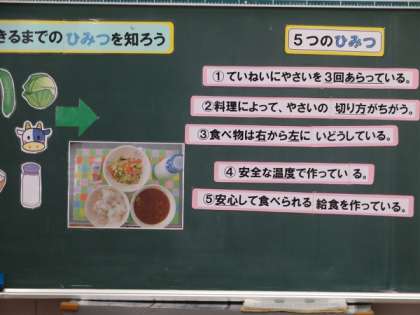 きるまでの ひみつを知ろう
5つのひみつ
①ていねいにやさいを3回あらっている。
②料理によって、やさいの 切り方がちがう。
③食べ物は右から左に いどうしている。
④安全な温度で作ってい る。
⑤安心して食べられる 給食を作っている。